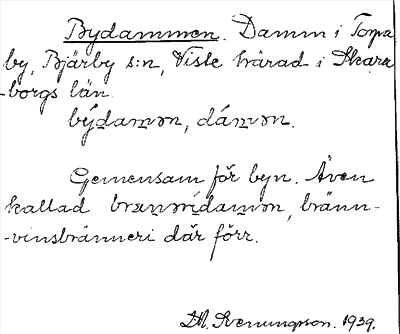 Bydammen. Damm i Torpa
by, Bjärby s:n, Viste härad i Skara-
-borgs län.
býdam̲ən, dám̲ən.
Gemensam för byn. Även
kallad bran̲ərídam̲ən, bränn-
-vinsbränneri där förr.
Svenungson. 1939.